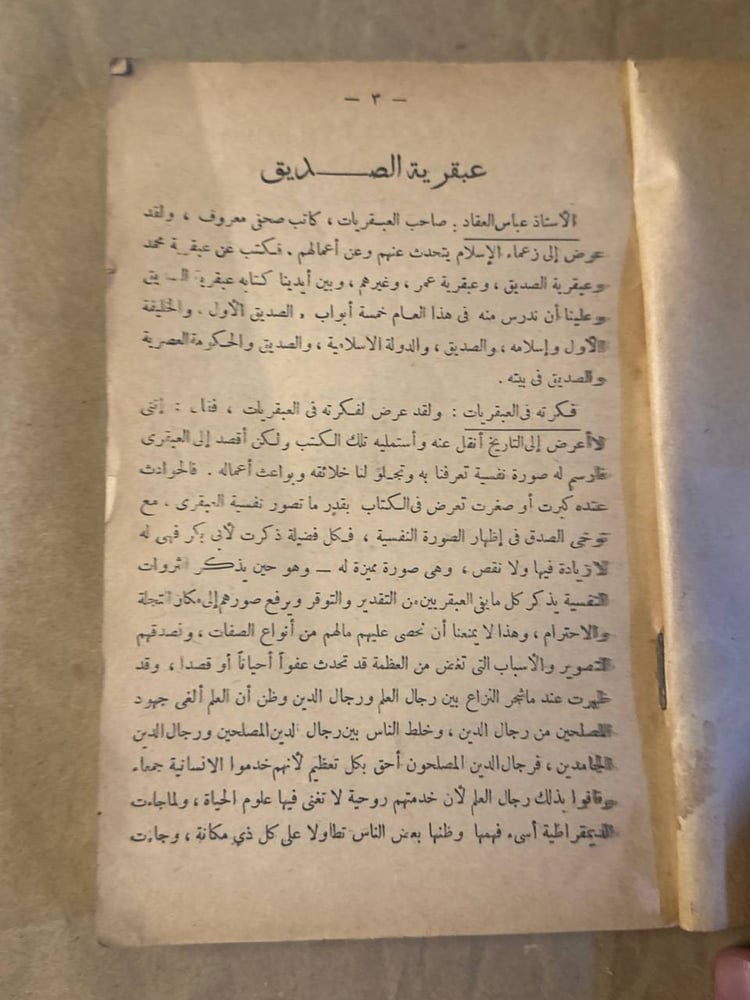 — ٣ —
عبقرية الصـــديق
الأستاذ عباس العقاد : صاحب العبقريات ، كاتب صحفى معروف ، ولقد
عرض إلى زعماء الإسلام يتحدث عنهم وعن أعمالهم . فكتب عن عبقرية محمد
وعبقرية الصديق ، وعبقرية عمر ، وغيرهم ، وبين أيدينا كتابه عبقرية الصديق
وعلينا أن ندرس منه فى هذا العام خمسة أبواب . الصديق الأول . والخليفة
الأول وإسلامه ، والصديق ، والدولة الاسلامية ، والصديق والحكومة العصرية
والصديق فى بيته .
فكرته فى العبقريات : ولقد عرض لفكرته فى العبقريات ، فقال : إننى
لا أعرض إلى التاريخ أنقل عنه وأستمليه تلك الكتب ولكن أقصد إلى العبقرى
فارسم له صورة نفسية تعرفنا به وتجلو لنا خلائقه وبواعث أعماله . فالحوادث
عنده كبرت أو صغرت تعرض فى الكتاب بقدر ما تصور نفسية العبقرى ، مع
توخى الصدق فى إظهار الصورة النفسية ، فكل فضيلة ذكرت لأبى بكر فهى له
لا زيادة فيها ولا نقص ، وهى صورة مميزة له — وهو حين يذكر الثروات
النفسية يذكر كل ما ينى العبقريين من التقدير والتوقر ويرفع صورهم إلى مكان التجلة
والاحترام ، وهذا لا يمنعنا أن نحصى عليهم مالهم من أنواع الصفات ، ونصدقهم
التصوير والأسباب التى تغض من العظمة قد تحدث عفواً أحياناً أو قصدا ، وقد
ظهرت عند ماشجر النزاع بين رجال العلم ورجال الدين وظن أن العلم ألغى جهود
المصلحين من رجال الدين ، وخلط الناس بين رجال الدين المصلحين ورجال الدين
الجامدين ، فرجال الدين المصلحون أحق بكل تعظيم لأنهم خدموا الانسانية جمعاء
وفاقوا بذلك رجال العلم لأن خدمتهم روحية لا تغنى فيها علوم الحياة ، ولما جاءت
الديمقراطية أسىء فهمها وظنها بعض الناس تطاولا على كل ذي مكانة ، وجاءت